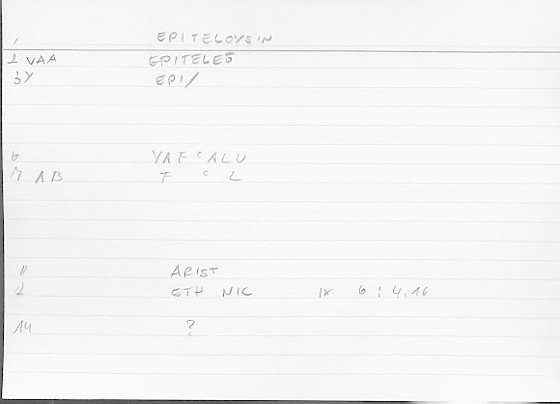 1 EPITELOYSIN
2 VAA EPITELEŌ
3Y EPI/
6 YAF CALU
7 AB F C L
11 ARIST
12 ETH NIC IX 6 : 4.16
14 ?